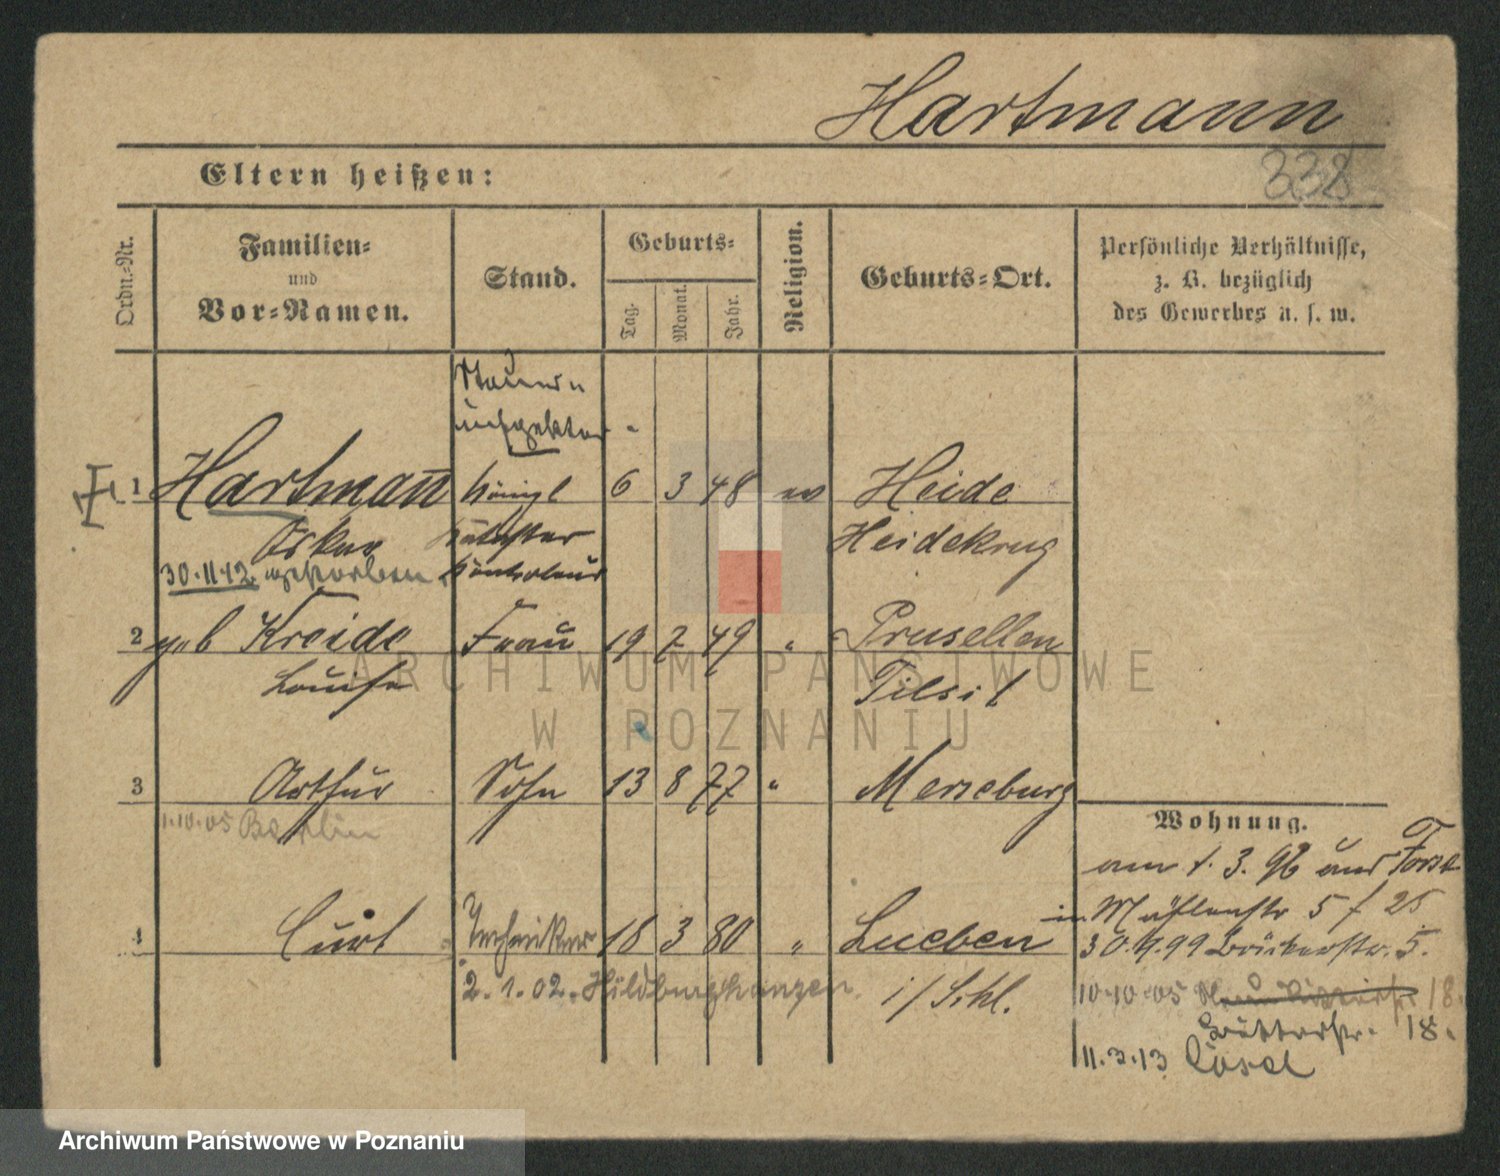 Hartmann
338
Eltern heißen:
Ordn.-Nr.
Familien-
und
Vor-Namen.
Stand.
Geburts-
Tag.
Monat.
Jahr.
Religion.
Geburts-Ort.
Persönliche Verhältnisse,
z. B. bezüglich
des Gewerbes u. s. w.
Steuer-
inspektor
1 Hartmann Königl 6 3 48 ev Heide
Oskar Kataster Heidekrug
30.11.12. gestorben. Kontroleur
2 geb Kreide Frau 19 7 49 " Prusellen
Louise Tilsit
3 Arthur Sohn 13 8 77 " Merseburg
1.10.05 Berlin
4 Curt Techniker 18 3 80 " Lueben
2.1.02. Hildburghausen i/Schl.
Wohnung.
am 1.3.96 aus Forst
in Mühlenstr 5 / 25
30.9.99 Bäckerstr. 5.
10.10.05 18.
Ritterstr. 18.
11.3.13 Cösel
ARCHIWUM PAŃSTWOWE
W POZNANIU
Archiwum Państwowe w Poznaniu